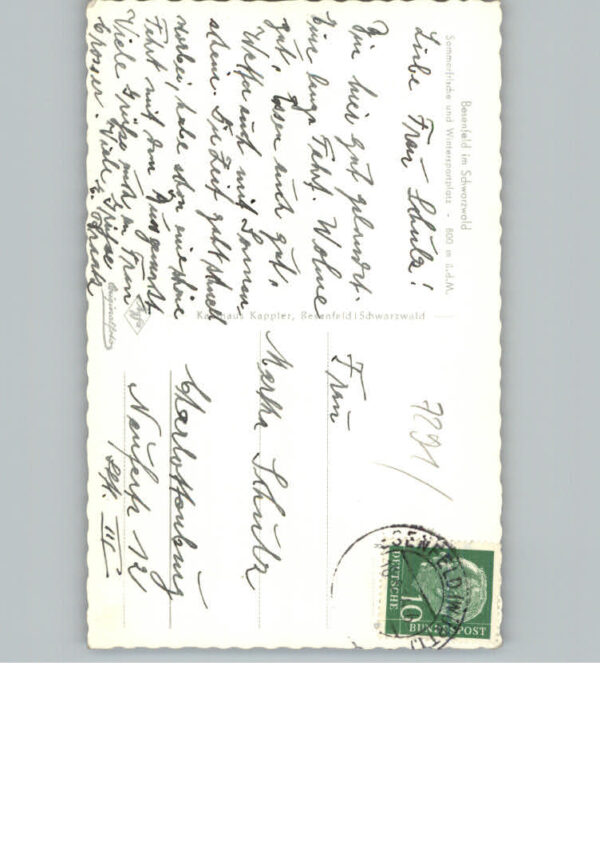 Besenfeld im Schwarzwald
Sommerfrische und Wintersportplatz - 800 m ü.d.M.
Liebe Frau Schulz!
Bin hier gut gelandet.
Eine lange Fahrt. Wohne
gut, Essen auch gut,
Wetter auch mit Sonnen
schein. Die Zeit geht schnell
vorbei, habe schon eine schöne
Fahrt mit dem
Viele Grüße auch an Frau
Viele Grüße
Kaufhaus Kappler, Besenfeld i Schwarzwald
Agfa
Originalfoto
7291
Frau
Martha Schulz
Charlottenburg
Neufertstr 12
III
DEUTSCHE
BUNDESPOST
10